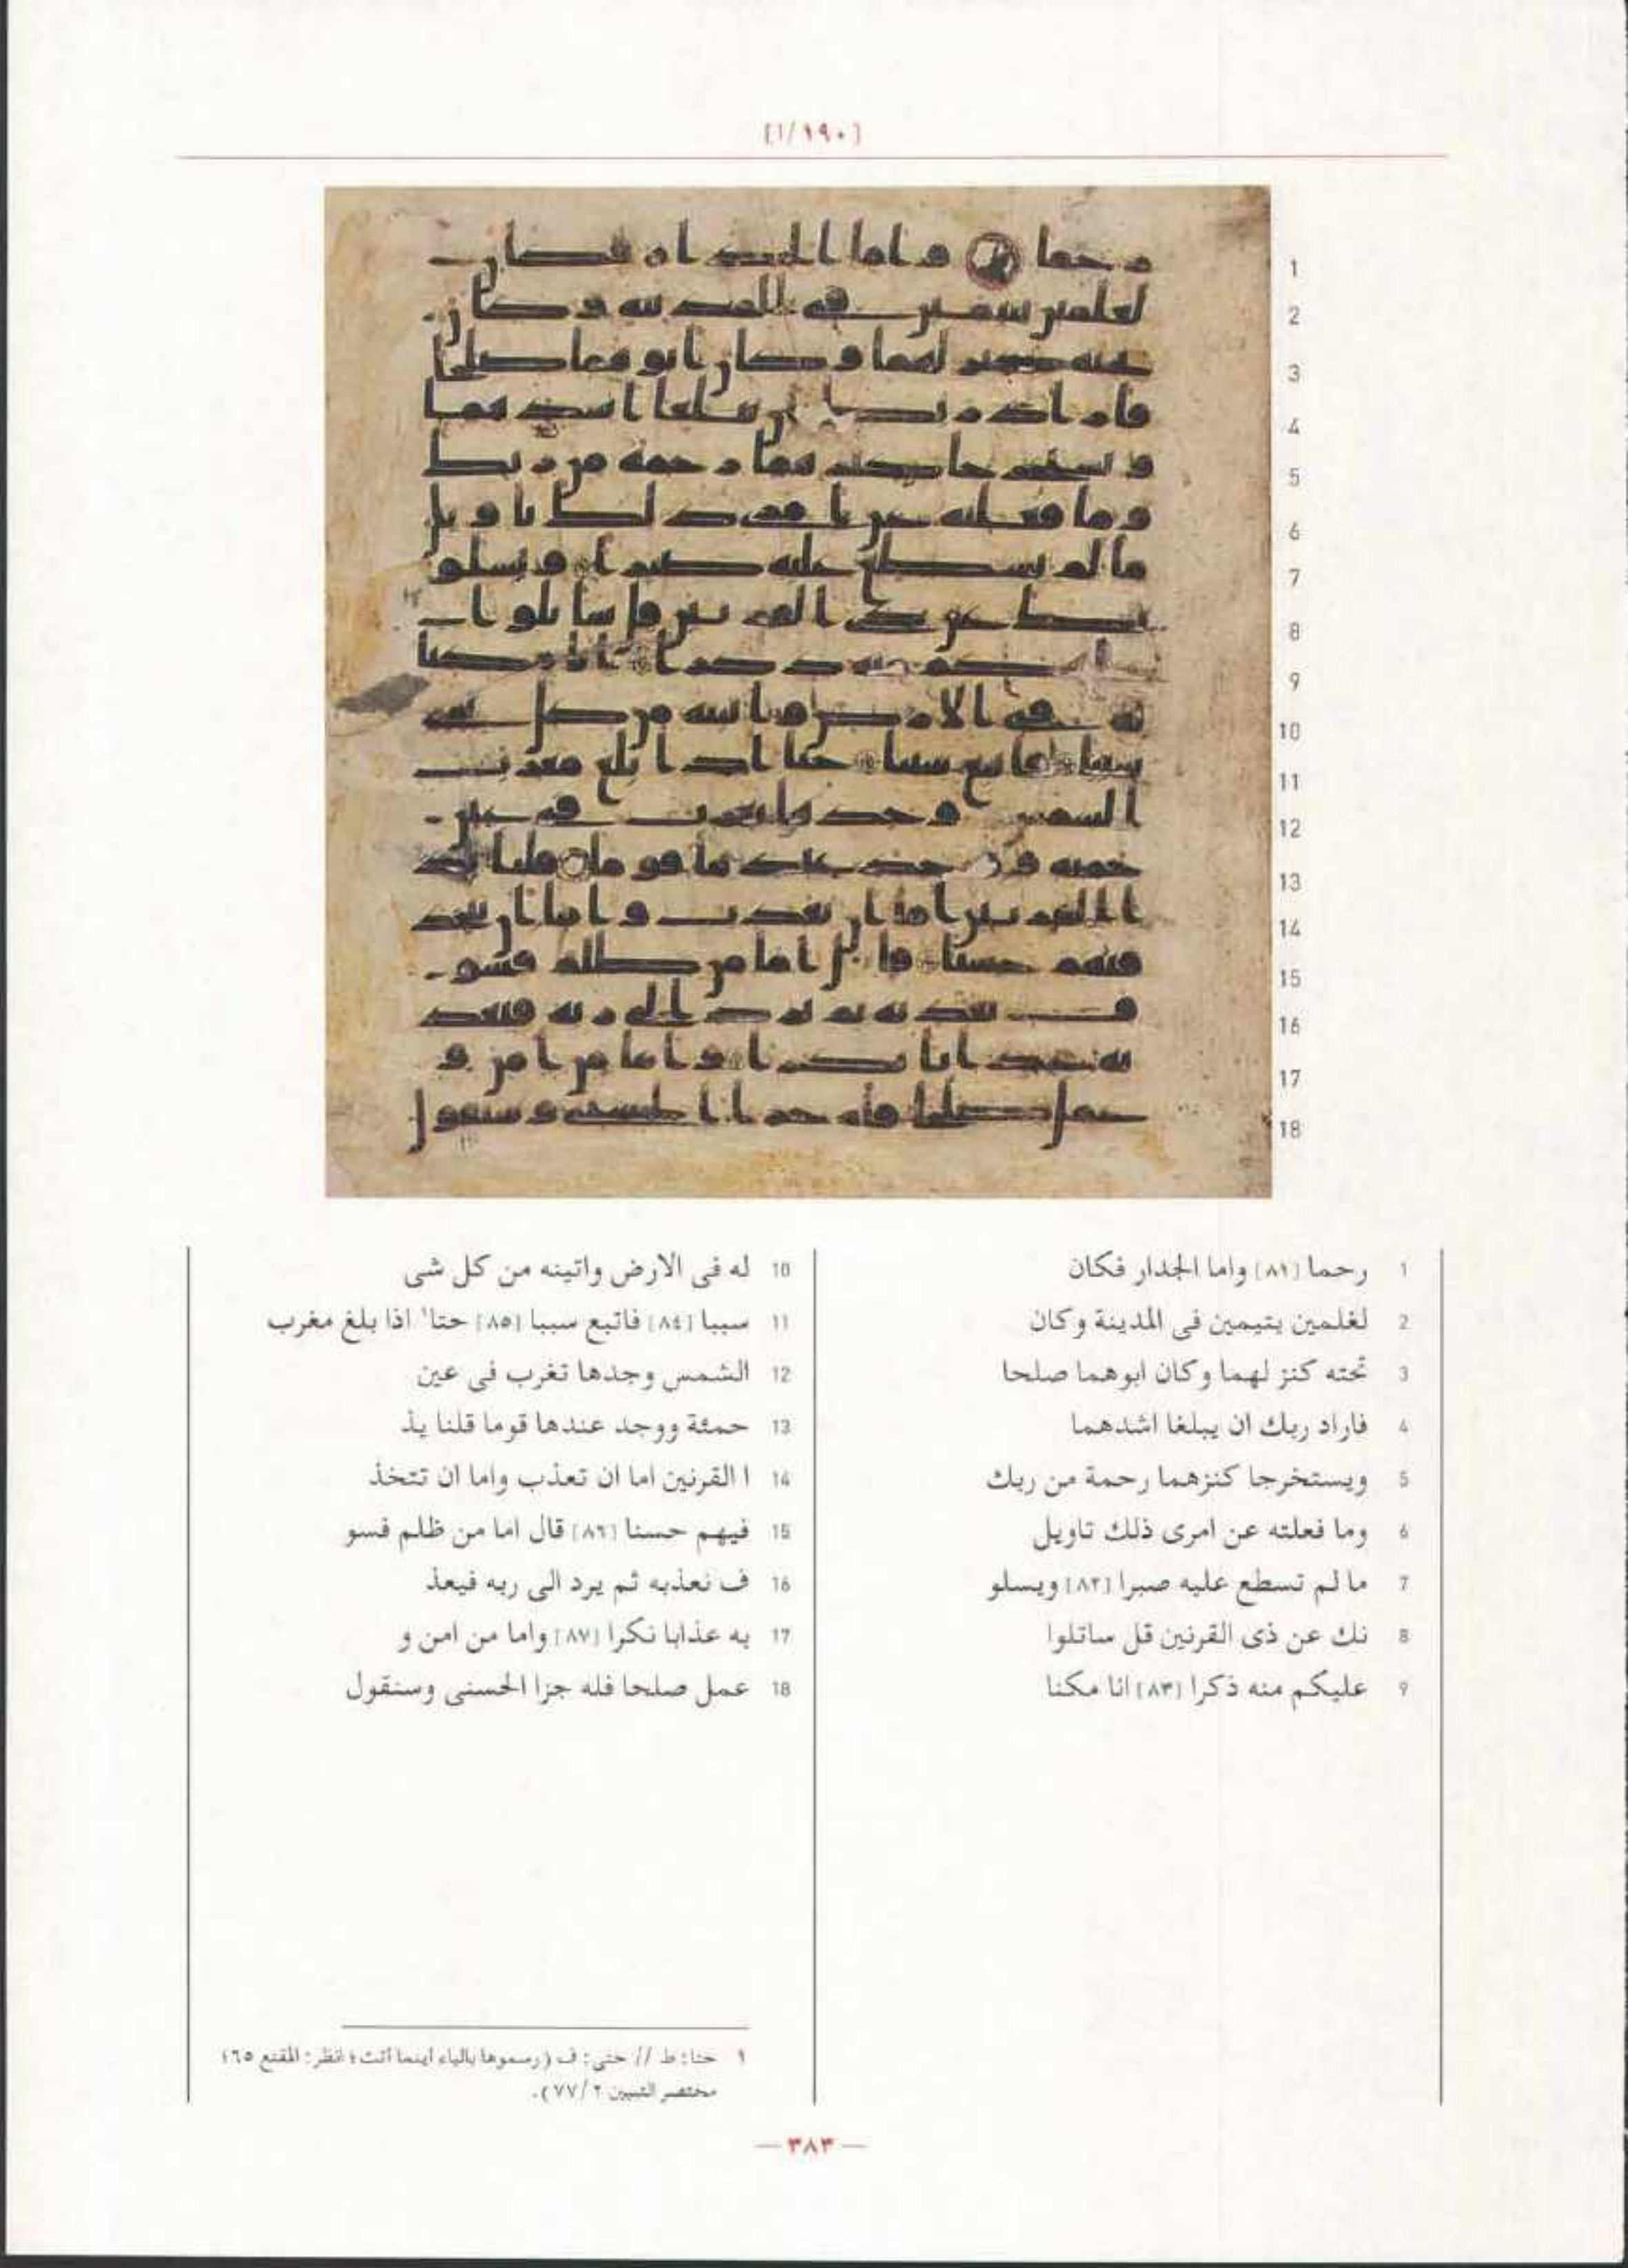 [١٩٠/١]
1 رحما [٨١] واما الجدار فكان
2 لغلمين يتيمين فى المدينة وكان
3 تحته كنز لهما وكان ابوهما صلحا
4 فاراد ربك ان يبلغا اشدهما
5 ويستخرجا كنزهما رحمة من ربك
6 وما فعلته عن امرى ذلك تاويل
7 ما لم تسطع عليه صبرا [٨٢] ويسلو
8 نك عن ذى القرنين قل ساتلوا
9 عليكم منه ذكرا [٨٣] انا مكنا
10 له فى الارض واتينه من كل شى
11 سببا [٨٤] فاتبع سببا [٨٥] حتا١ اذا بلغ مغرب
12 الشمس وجدها تغرب فى عين
13 حمئة ووجد عندها قوما قلنا يذ
14 ا القرنين اما ان تعذب واما ان تتخذ
15 فيهم حسنا [٨٦] قال اما من ظلم فسو
16 ف نعذبه ثم يرد الى ربه فيعذ
17 به عذابا نكرا [٨٧] واما من امن و
18 عمل صلحا فله جزا الحسنى وسنقول
١ حتا: ط // حتى: ف (رسموها بالياء اينما اتت؛ انظر: المقنع ٦٥؛
مختصر التبيين ٧٧/٢).
— ٣٨٣ —